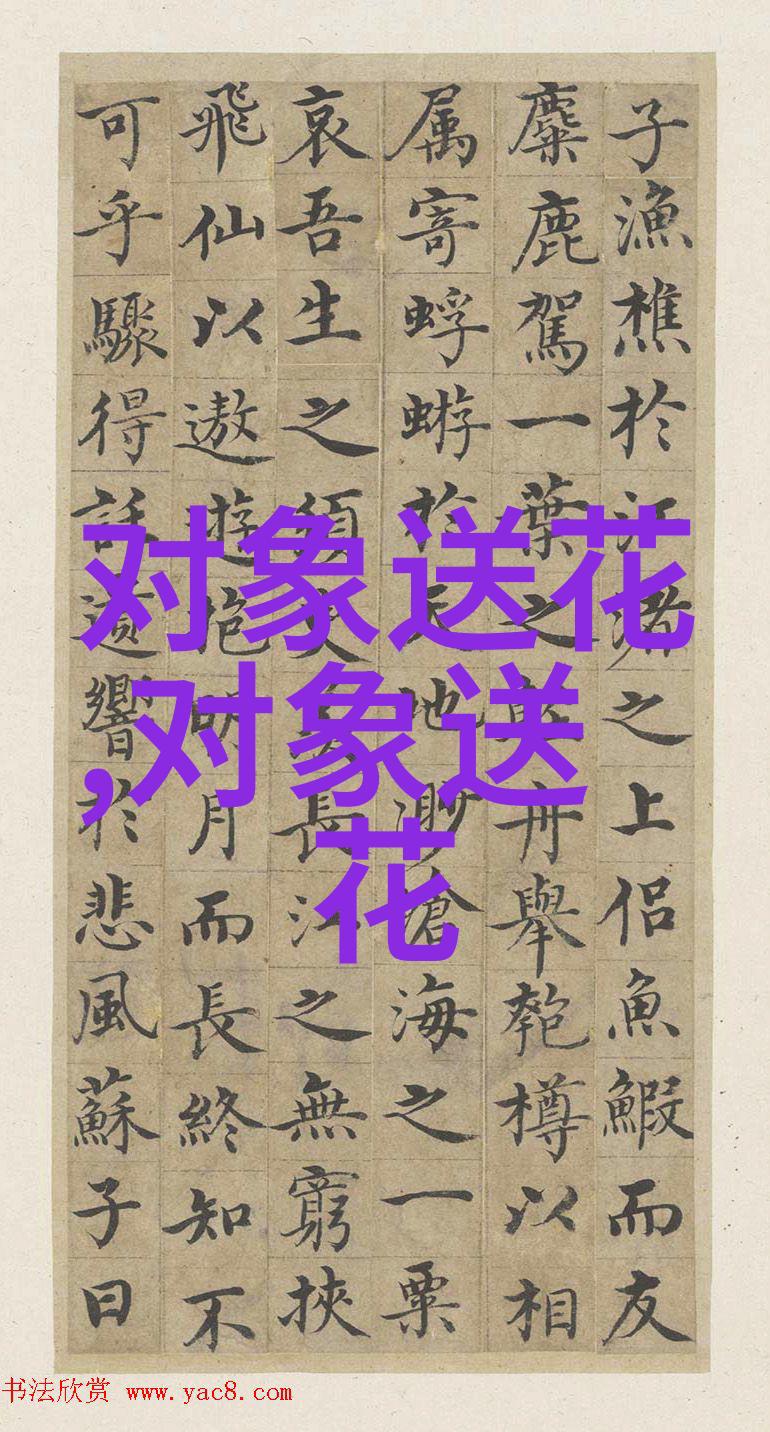 子漁樵於江渚之上侶魚鰕而友
麋鹿駕一葉之舟舉匏樽以相
属寄蜉蝣於天地渺滄海之一粟
哀吾生之須臾長江之無窮挾
飛仙以遨遊抱明月而長終知不
可乎驟得託遺響於悲風蘇子曰
对象送花
,对象送
花
书法欣赏 www.yac8.com